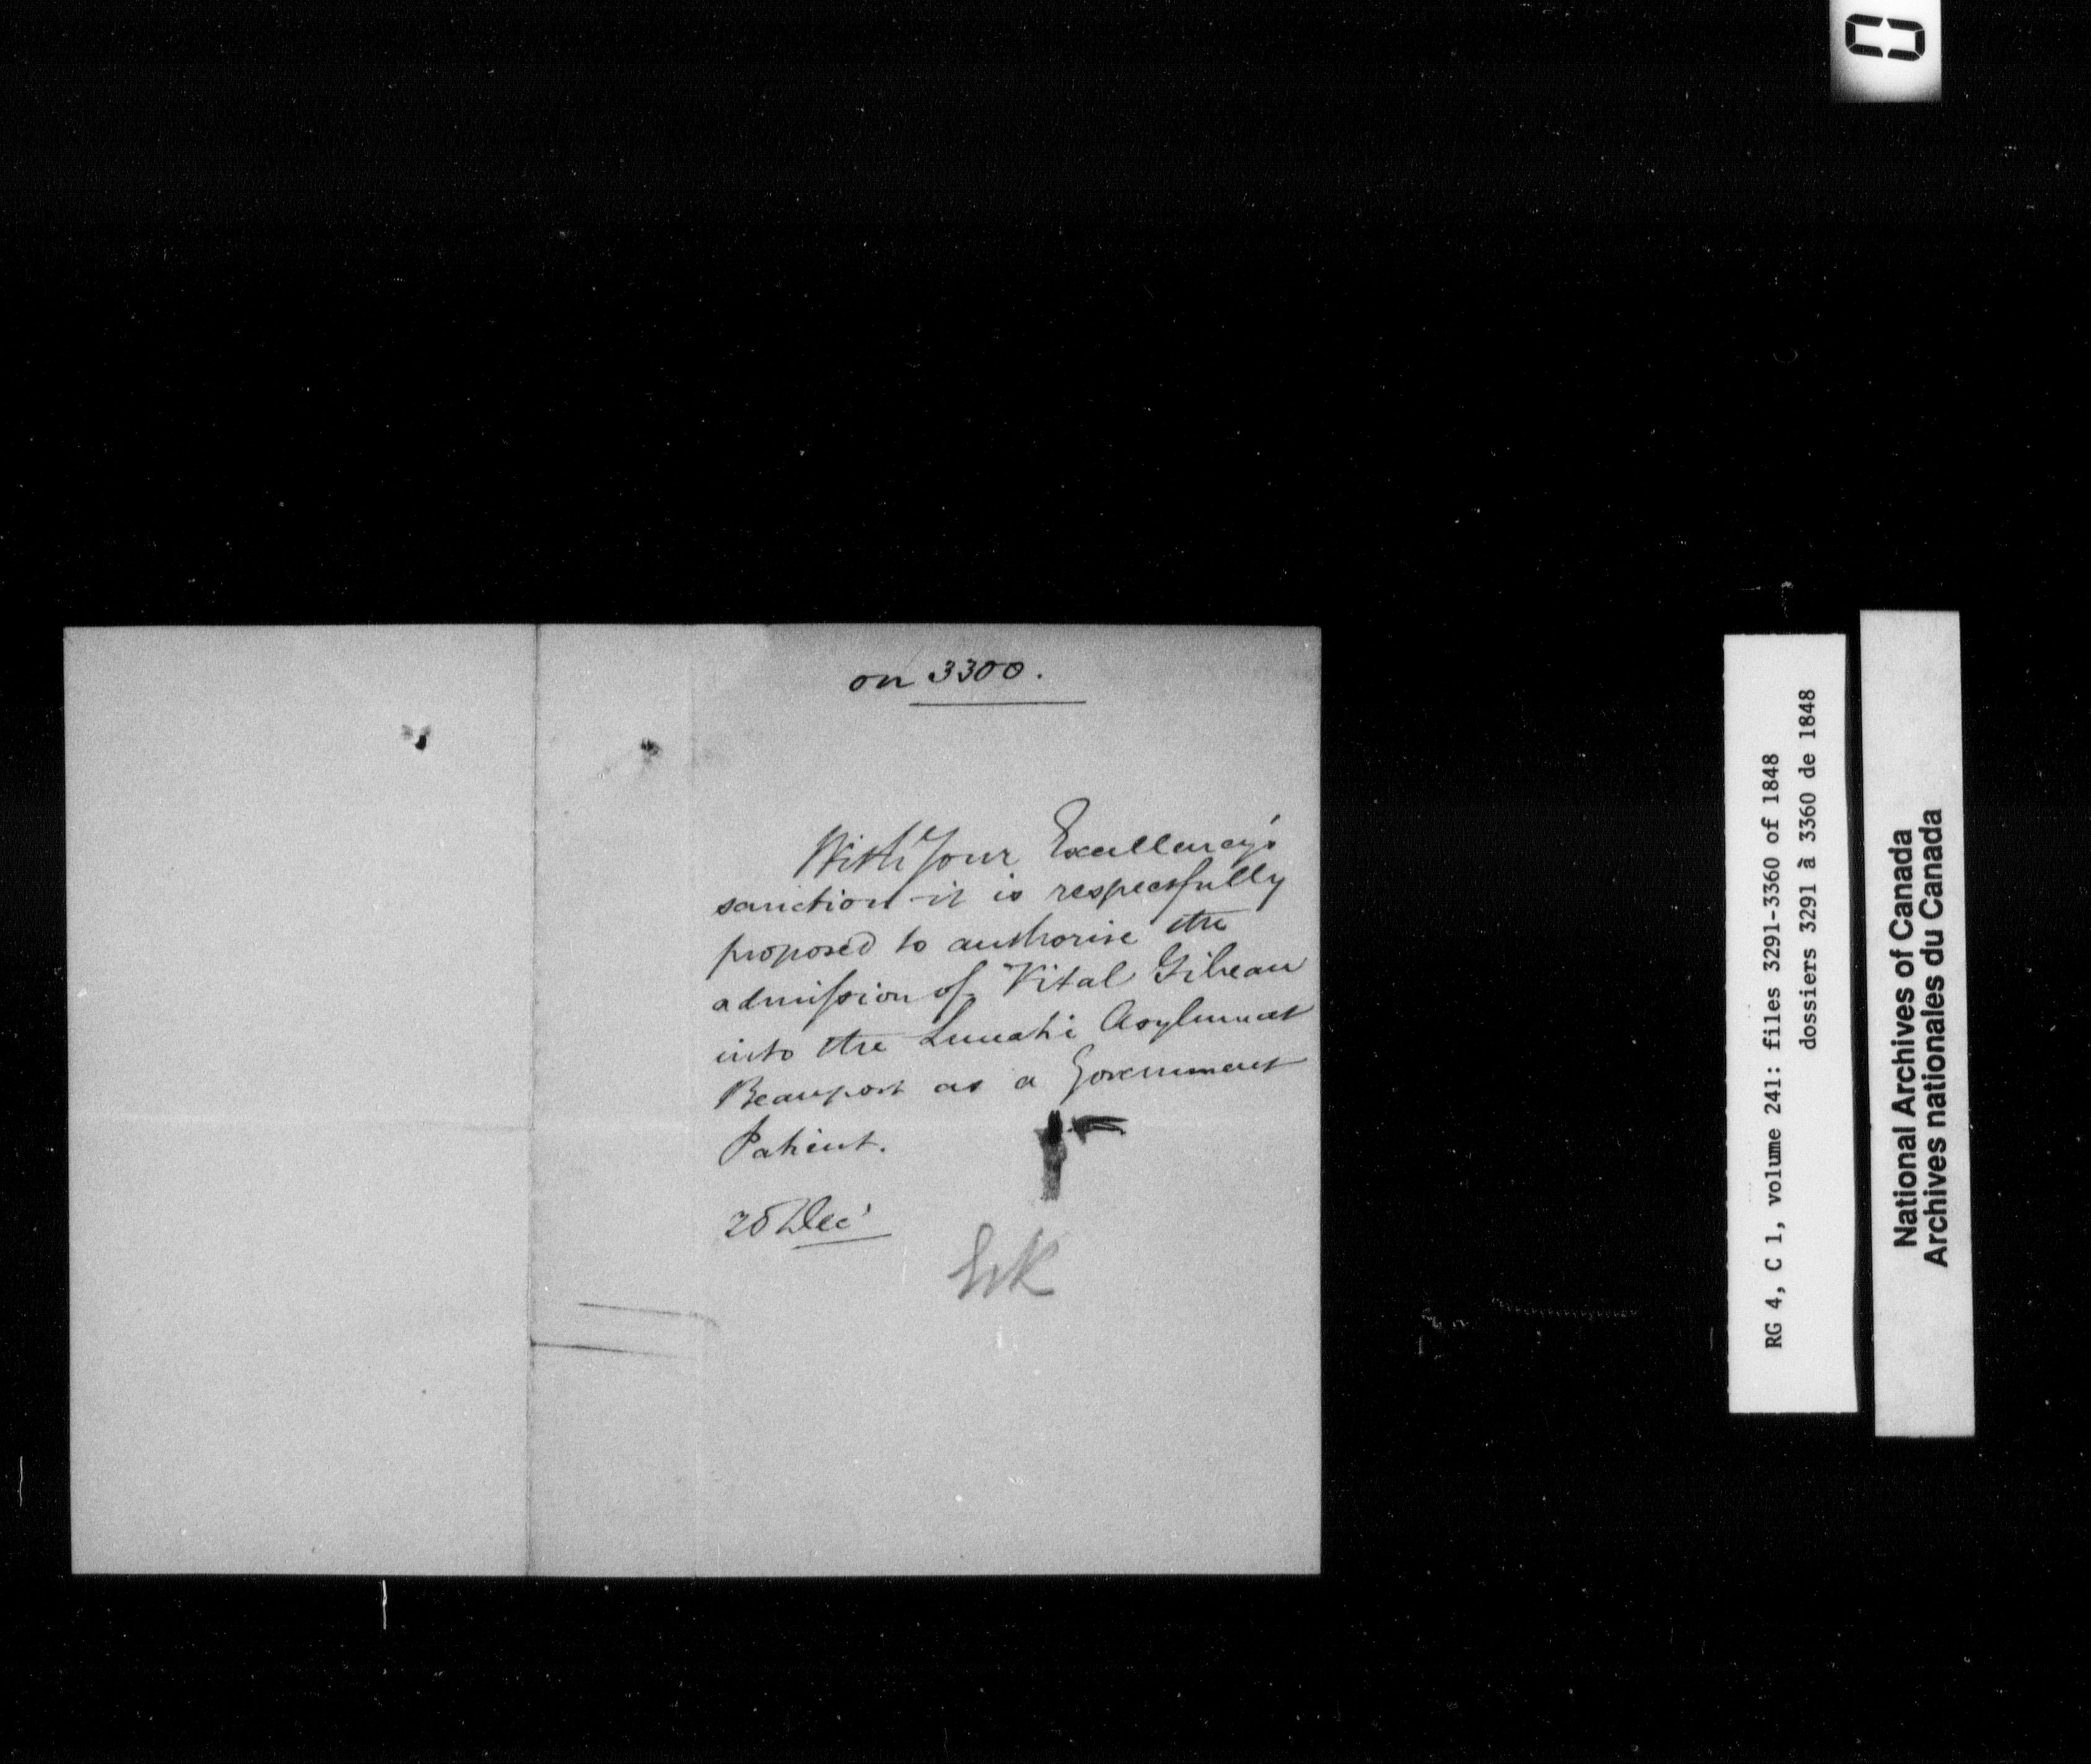 on 3300.
With Your Excellency's
sanction it is respectfully
proposed to authorise the
admission of Vital Gibeau
into the Lunatic Asylum at
Beauport as a Government
Patient.
Dec
RG 4, C 1, volume 241: files 3291-3360 of 1848
dossiers 3291 à 3360 de 1848
National Archives of Canada
Archives nationales du Canada